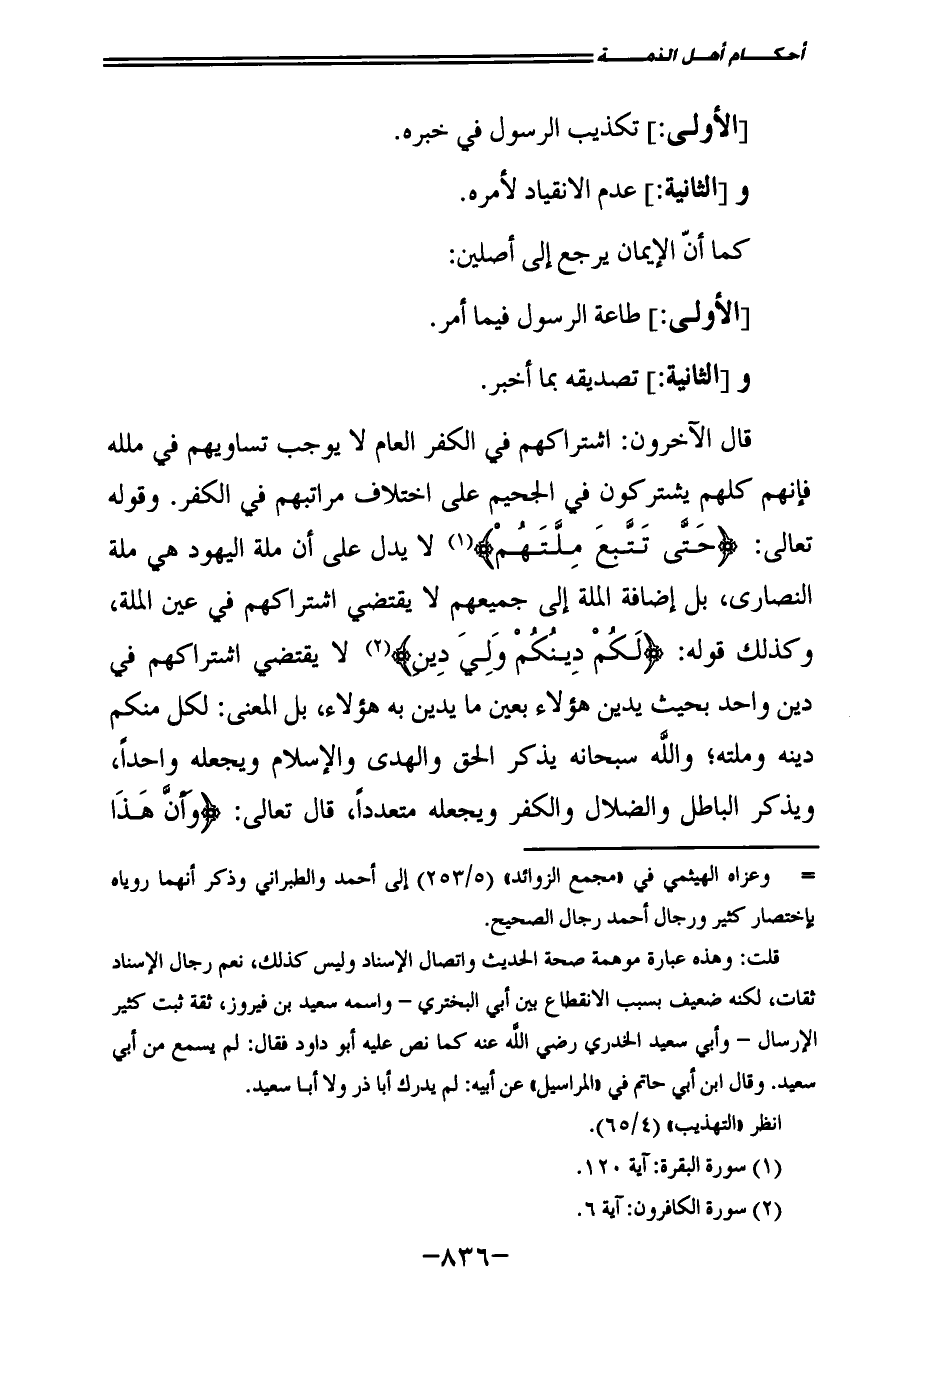 أحكـــام أهـل الذمـــة
[الأولـى:] تكذيب الرسول في خبره.
و [الثانية:] عدم الانقياد لأمره.
كما أنّ الإيمان يرجع إلى أصلين:
[الأولـى:] طاعة الرسول فيما أمر.
و [الثانية:] تصديقه بما أخبر.
قال الآخرون: اشتراكهم في الكفر العام لا يوجب تساويهم في ملله
فإنهم كلهم يشتركون في الجحيم على اختلاف مراتبهم في الكفر. وقوله
تعالى: ﴿حَتَّى تَتَّبِعَ مِلَّتَهُمْ﴾(١) لا يدل على أن ملة اليهود هي ملة
النصارى، بل إضافة الملة إلى جميعهم لا يقتضي اشتراكهم في عين الملة،
وكذلك قوله: ﴿لَكُمْ دِينُكُمْ وَلِيَ دِينِ﴾(٢) لا يقتضي اشتراكهم في
دين واحد بحيث يدين هؤلاء بعين ما يدين به هؤلاء، بل المعنى: لكل منكم
دينه وملته؛ واللَّه سبحانه يذكر الحق والهدى والإسلام ويجعله واحداً،
ويذكر الباطل والضلال والكفر ويجعله متعدداً، قال تعالى: ﴿وَأَنَّ هَـذَا
= وعزاه الهيثمي في «مجمع الزوائد» (٢٥٣/٥) إلى أحمد والطبراني وذكر أنهما روياه
بإختصار كثير ورجال أحمد رجال الصحيح.
قلت: وهذه عبارة موهمة صحة الحديث واتصال الإسناد وليس كذلك، نعم رجال الإسناد
ثقات، لكنه ضعيف بسبب الانقطاع بين أبي البختري – واسمه سعيد بن فيروز، ثقة ثبت كثير
الإرسال – وأبي سعيد الخدري رضي اللَّه عنه كما نص عليه أبو داود فقال: لم يسمع من أبي
سعيد. وقال ابن أبي حاتم في «المراسيل» عن أبيه: لم يدرك أبا ذر ولا أبـا سعيد.
انظر «التهذيب» (٦٥/٤).
(١) سورة البقرة: آية ١٢٠.
(٢) سورة الكافرون: آية ٦.
–٨٣٦–